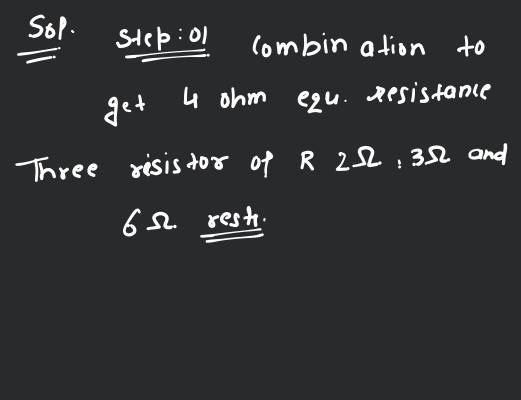 Sol. Step:01 Combination to
get 4 ohm equ. resistance
Three resistor of R 2Ω, 3Ω and
6Ω. restr.